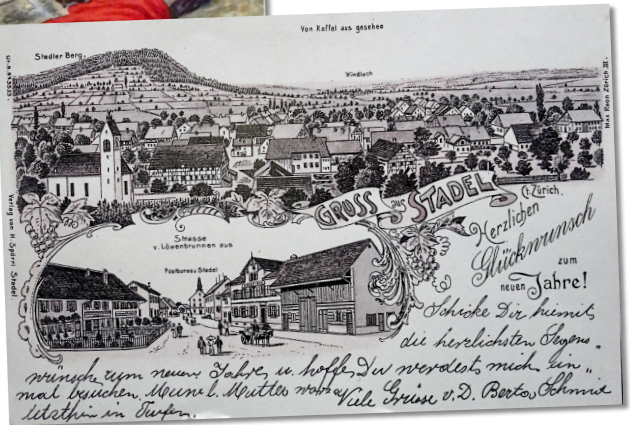 Von Raffel aus gesehen
Stadler Berg.
Windlach
Max Kunz Zürich III.
Verlag von H. Spörri Stadel.
GRUSS aus STADEL
Ct. Zürich.
Strasse
v. Löwenbrunnen aus
Postbureau Stadel
Herzlichen
Glückwunsch
zum
neuen Jahre!
Schicke Dir hiemit
die herzlichsten Segens„
wünsche zum neuen Jahre u. hoffe Du werdest mich ein„
mal besuchen. Meine l. Mutter war
letzthin in
Viele Grüsse v. D. Berta Schmid